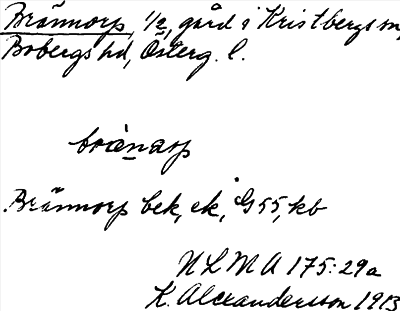 Brännorp, 1/2, gård i Kristbergs sn,
Bobergs hd, Österg. l.
brànarp
Brännorp bek, ek, G55, kb
NLMA 175:29a
K. Alexandersson 1913